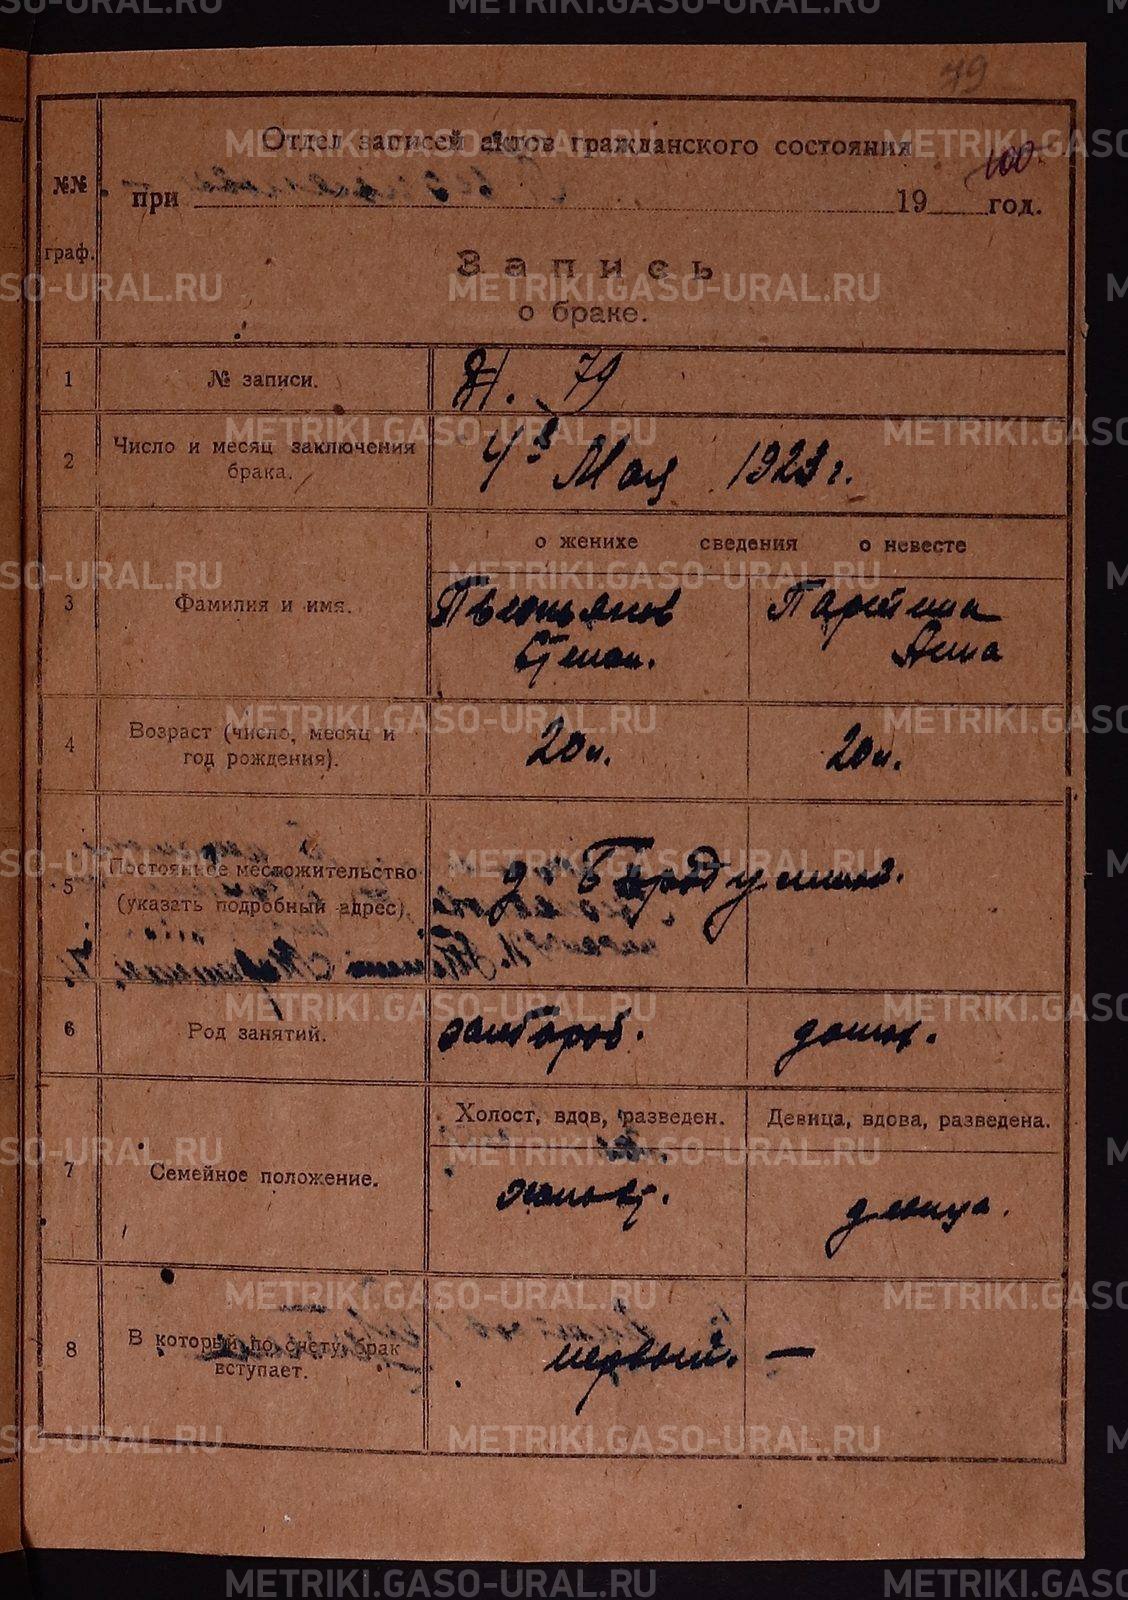 79
Отдел записей актов гражданского состояния
100
№№
граф.
при 19 год.
Запись
о браке.
1 № записи. 79
2 Число и месяц заключения брака. 4 Мая 1923 г.
о женихе сведения о невесте
3 Фамилия и имя. Паршина
Степан. Анна
4 Возраст (число, месяц и год рождения). 20 л. 20 л.
5 Постоянное местожительство (указать подробный адрес). д.
6 Род занятий. хлебороб. домох.
Холост, вдов, разведен. Девица, вдова, разведена.
7 Семейное положение. холост. девица.
8 В который по счету брак вступает. первый. —
METRIKI.GASO-URAL.RU